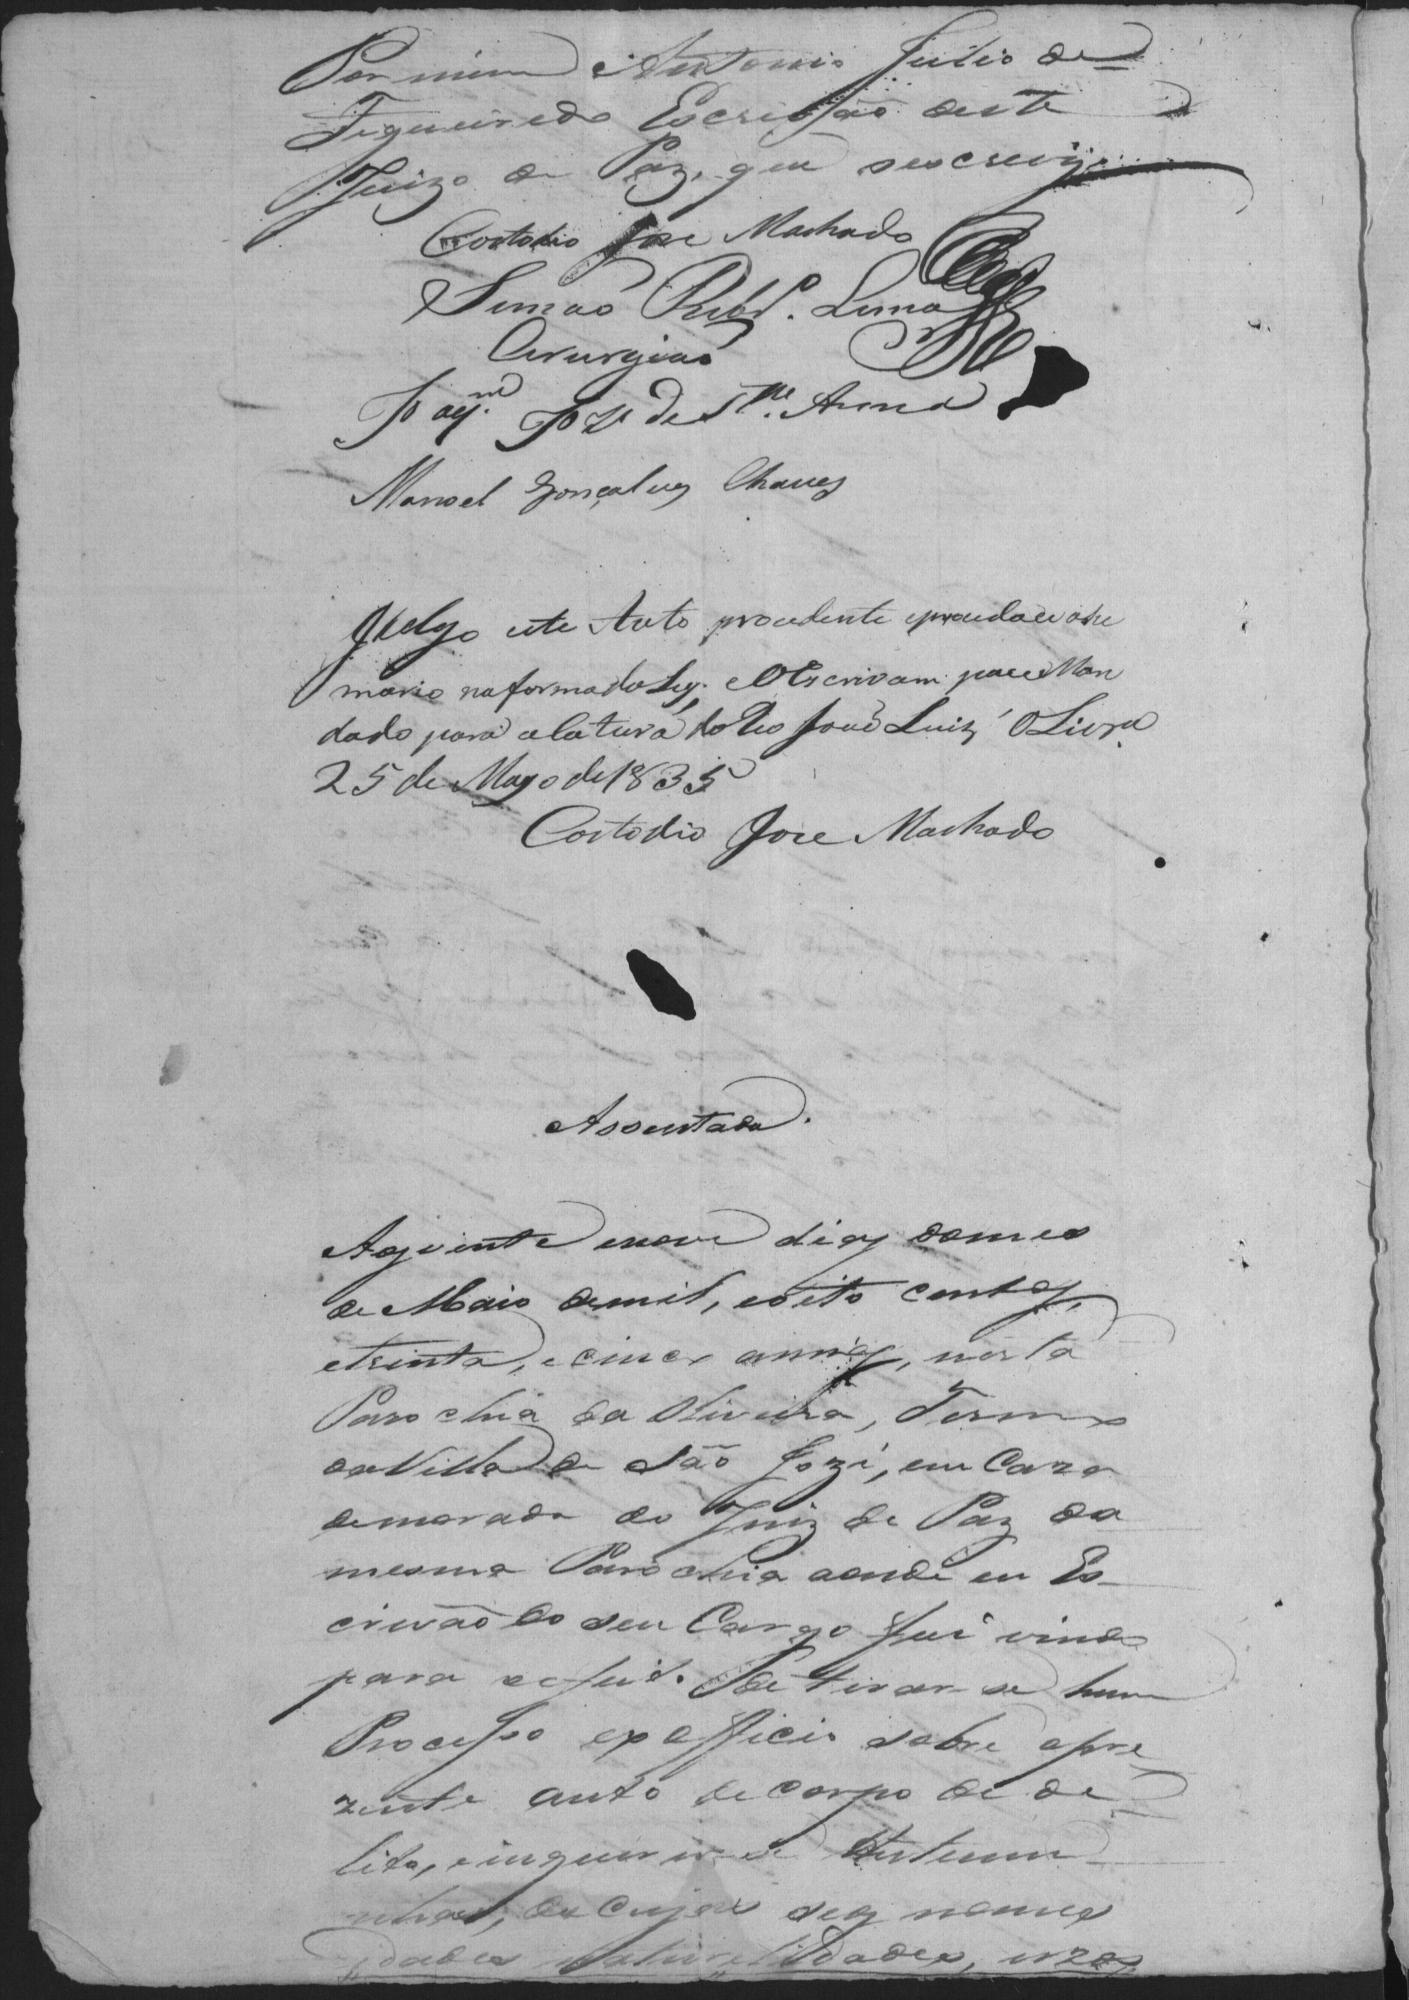 Por mim Antonio Julio de
Figueiredo Escrivão deste
Juizo de Paz, que sescrevy.
Costodio Joze Machado
Simaõ Ribr.º Lima
Cirurgiaõ
Joaq.m Jze de S.ta Anna
Manoel Gonçalves Chaves
Julgo este Auto procedente
mario naformada Ley, eOEscrivam pace Man
dado para alatura do Reo Joze Luiz OLivra
25 de Mayo de 1835
Costodio Joze Machado
Assentada.
Aos vinte enove dias domes
de Maio demil, eoito centos,
etrinta, ecinco annos, nesta
Parochia da Oliveira, Termo
daVilla de São Jozé, em Caza
demorada do Juiz de Paz da
mesma Parochia aonde eu Es-
crivão do seu Cargo fui vindo
para efeito de tirar-se hum
Processo ex officio sobre opre
zente auto decorpo de de-
lito, einquirir-se testemu-
nhas, de cujos seos nomes
idades naturalidades, uzos